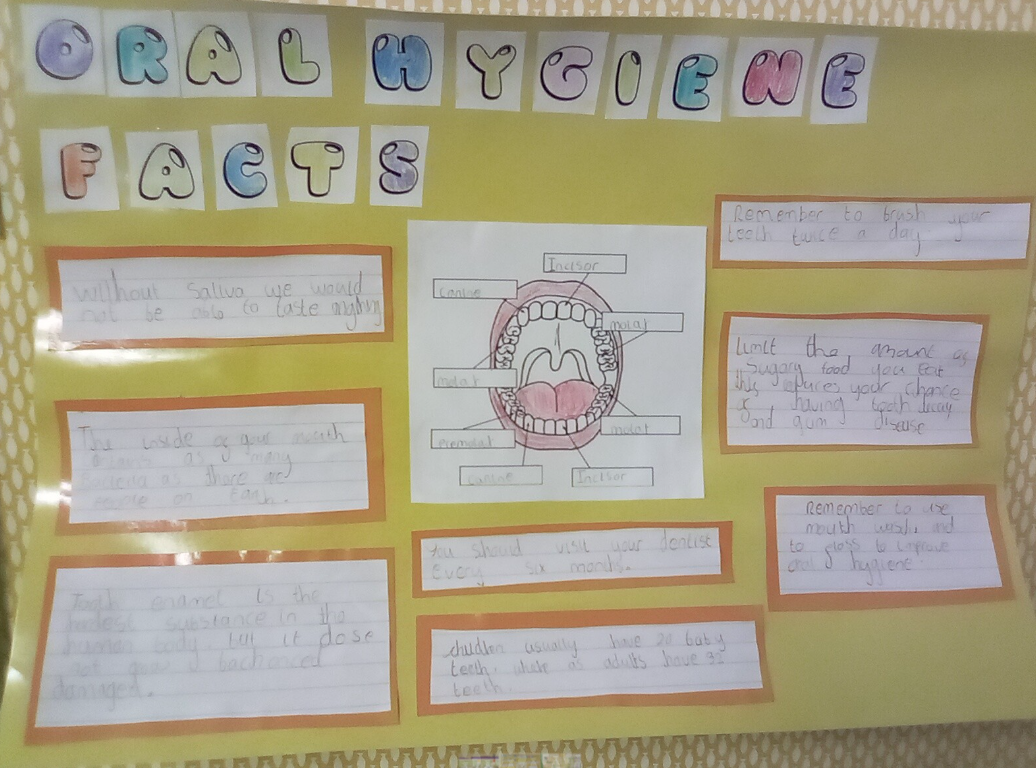 ORAL HYGIENE
FACTS
Without Saliva we would
not be able to taste anything
The inside of your mouth
as many
bacteria as there are
people on Earth.
Tooth enamel is the
hardest substance in the
human body. but it dose
not
damaged.
Incisor
canine
molar
molar
premolar
molar
canine
Incisor
You should visit your dentist
every six months.
children usually have 20 baby
teeth. as adults have 32
teeth.
Remember to brush your
teeth twice a day.
Limit the amount of
Sugary food you eat
this reduces your chance
of having tooth decay
and gum disease
Remember to use
mouth wash, and
to floss to improve
oral hygiene.